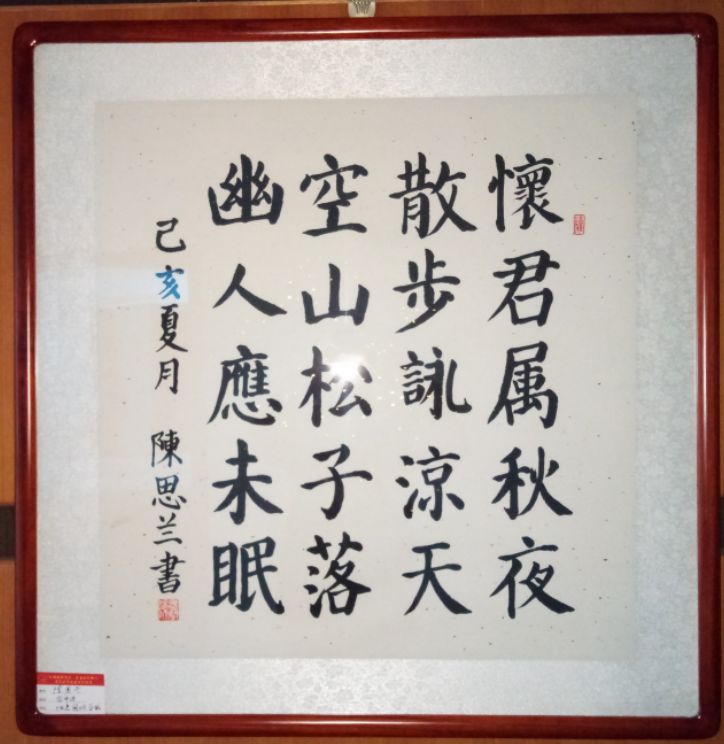 懷君属秋夜
散步詠涼天
空山松子落
幽人應未眠
己亥夏月 陳思兰書